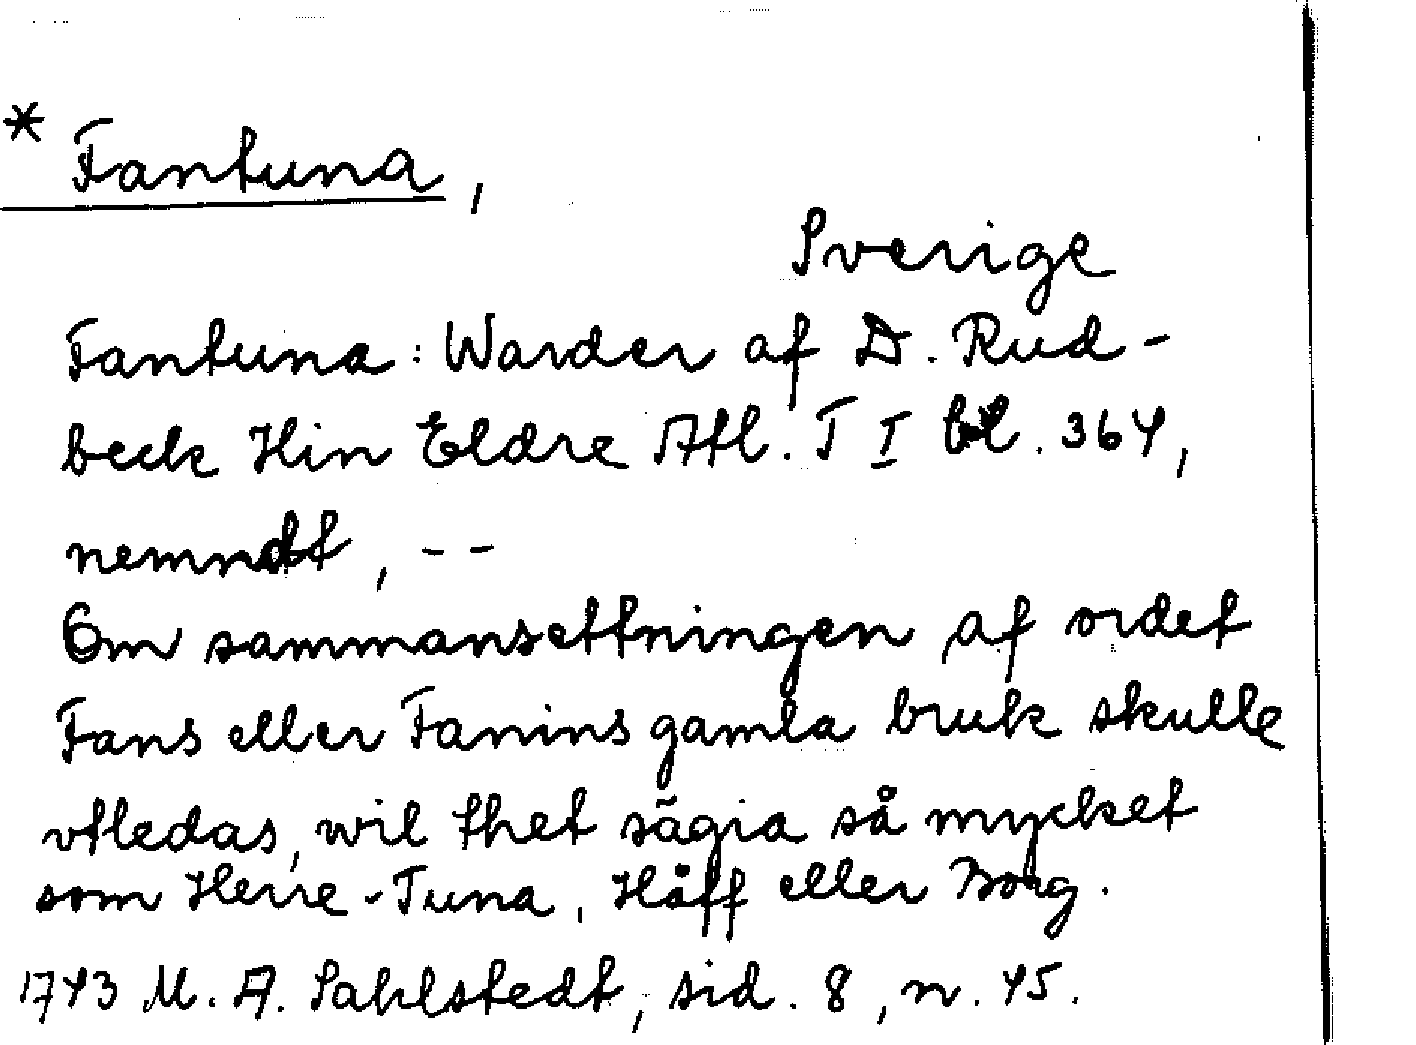 * Fantuna,
Sverige
Fantuna: Warder af D. Rud-
beck Hin Eldre Atl. T I bl. 364,
nemndt, --
Om sammansettningen af ordet
Fans eller Fanins gamla bruk skulle
vtledas, wil thet sägia så mycket
som Herre-Tuna, Håff eller Borg.
1743 M. A. Sahlstedt, sid. 8, n. 45.